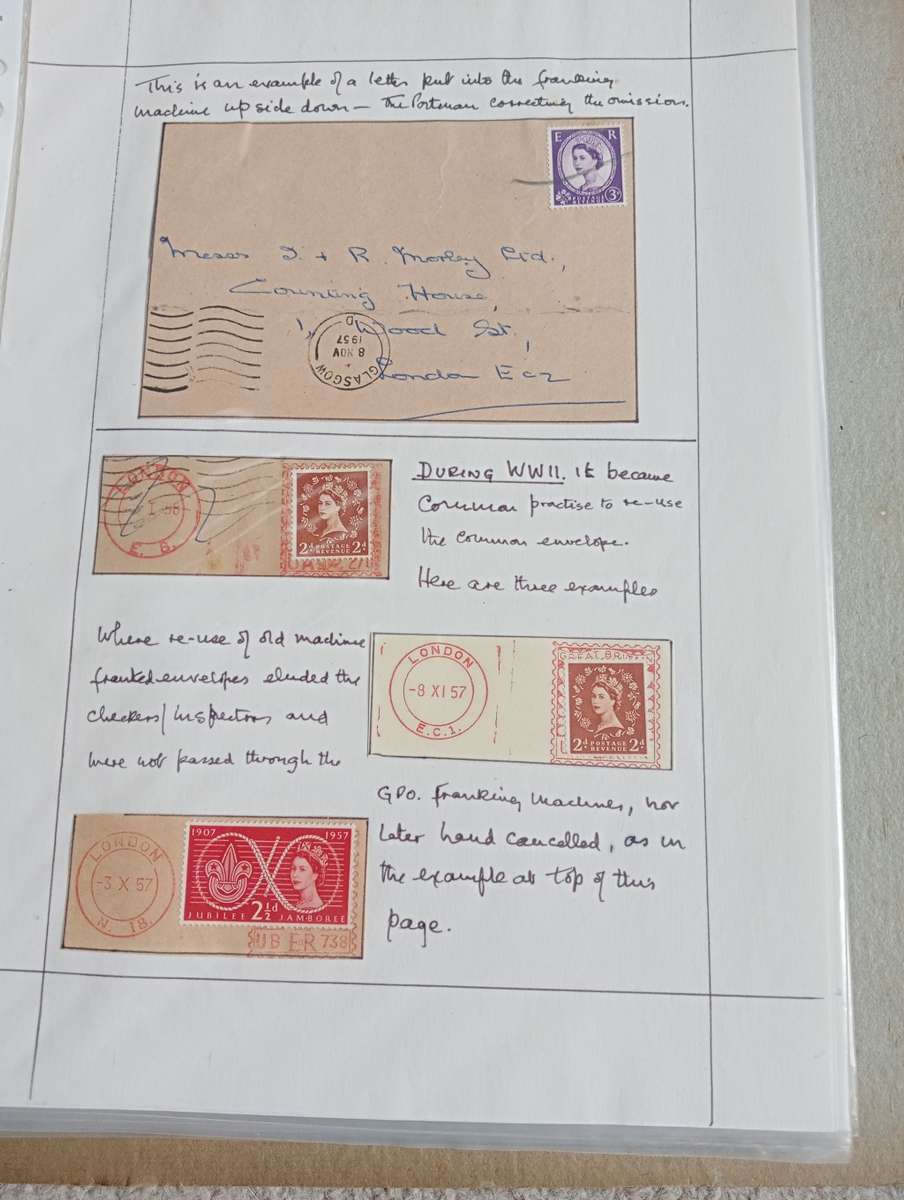 This is an example of a letter put into the franking
machine up side down — The Postman correcting the omission.
E R
POSTAGE REVENUE
3D
Messrs I. + R. Morley Ltd.,
Counting House,
1, Wood St.,
London EC2
GLASGOW
8 NOV
1957
D
LONDON
1 58
E. 6.
2D POSTAGE REVENUE 2D
DURING WWII. it became
Common practise to re-use
the common envelope.
Here are three examples
Where re-use of old machine
franked envelopes eluded the
checkers/inspectors and
were not passed through the
LONDON
-8 XI 57
E.C.1.
GREAT BRITAIN
2D POSTAGE REVENUE 2D
GPO. franking machines, nor
later hand cancelled, as in
the example at top of this
page.
LONDON
-3 X 57
N. 18.
1907 1957
JUBILEE 2½D JAMBOREE
UB ER 738